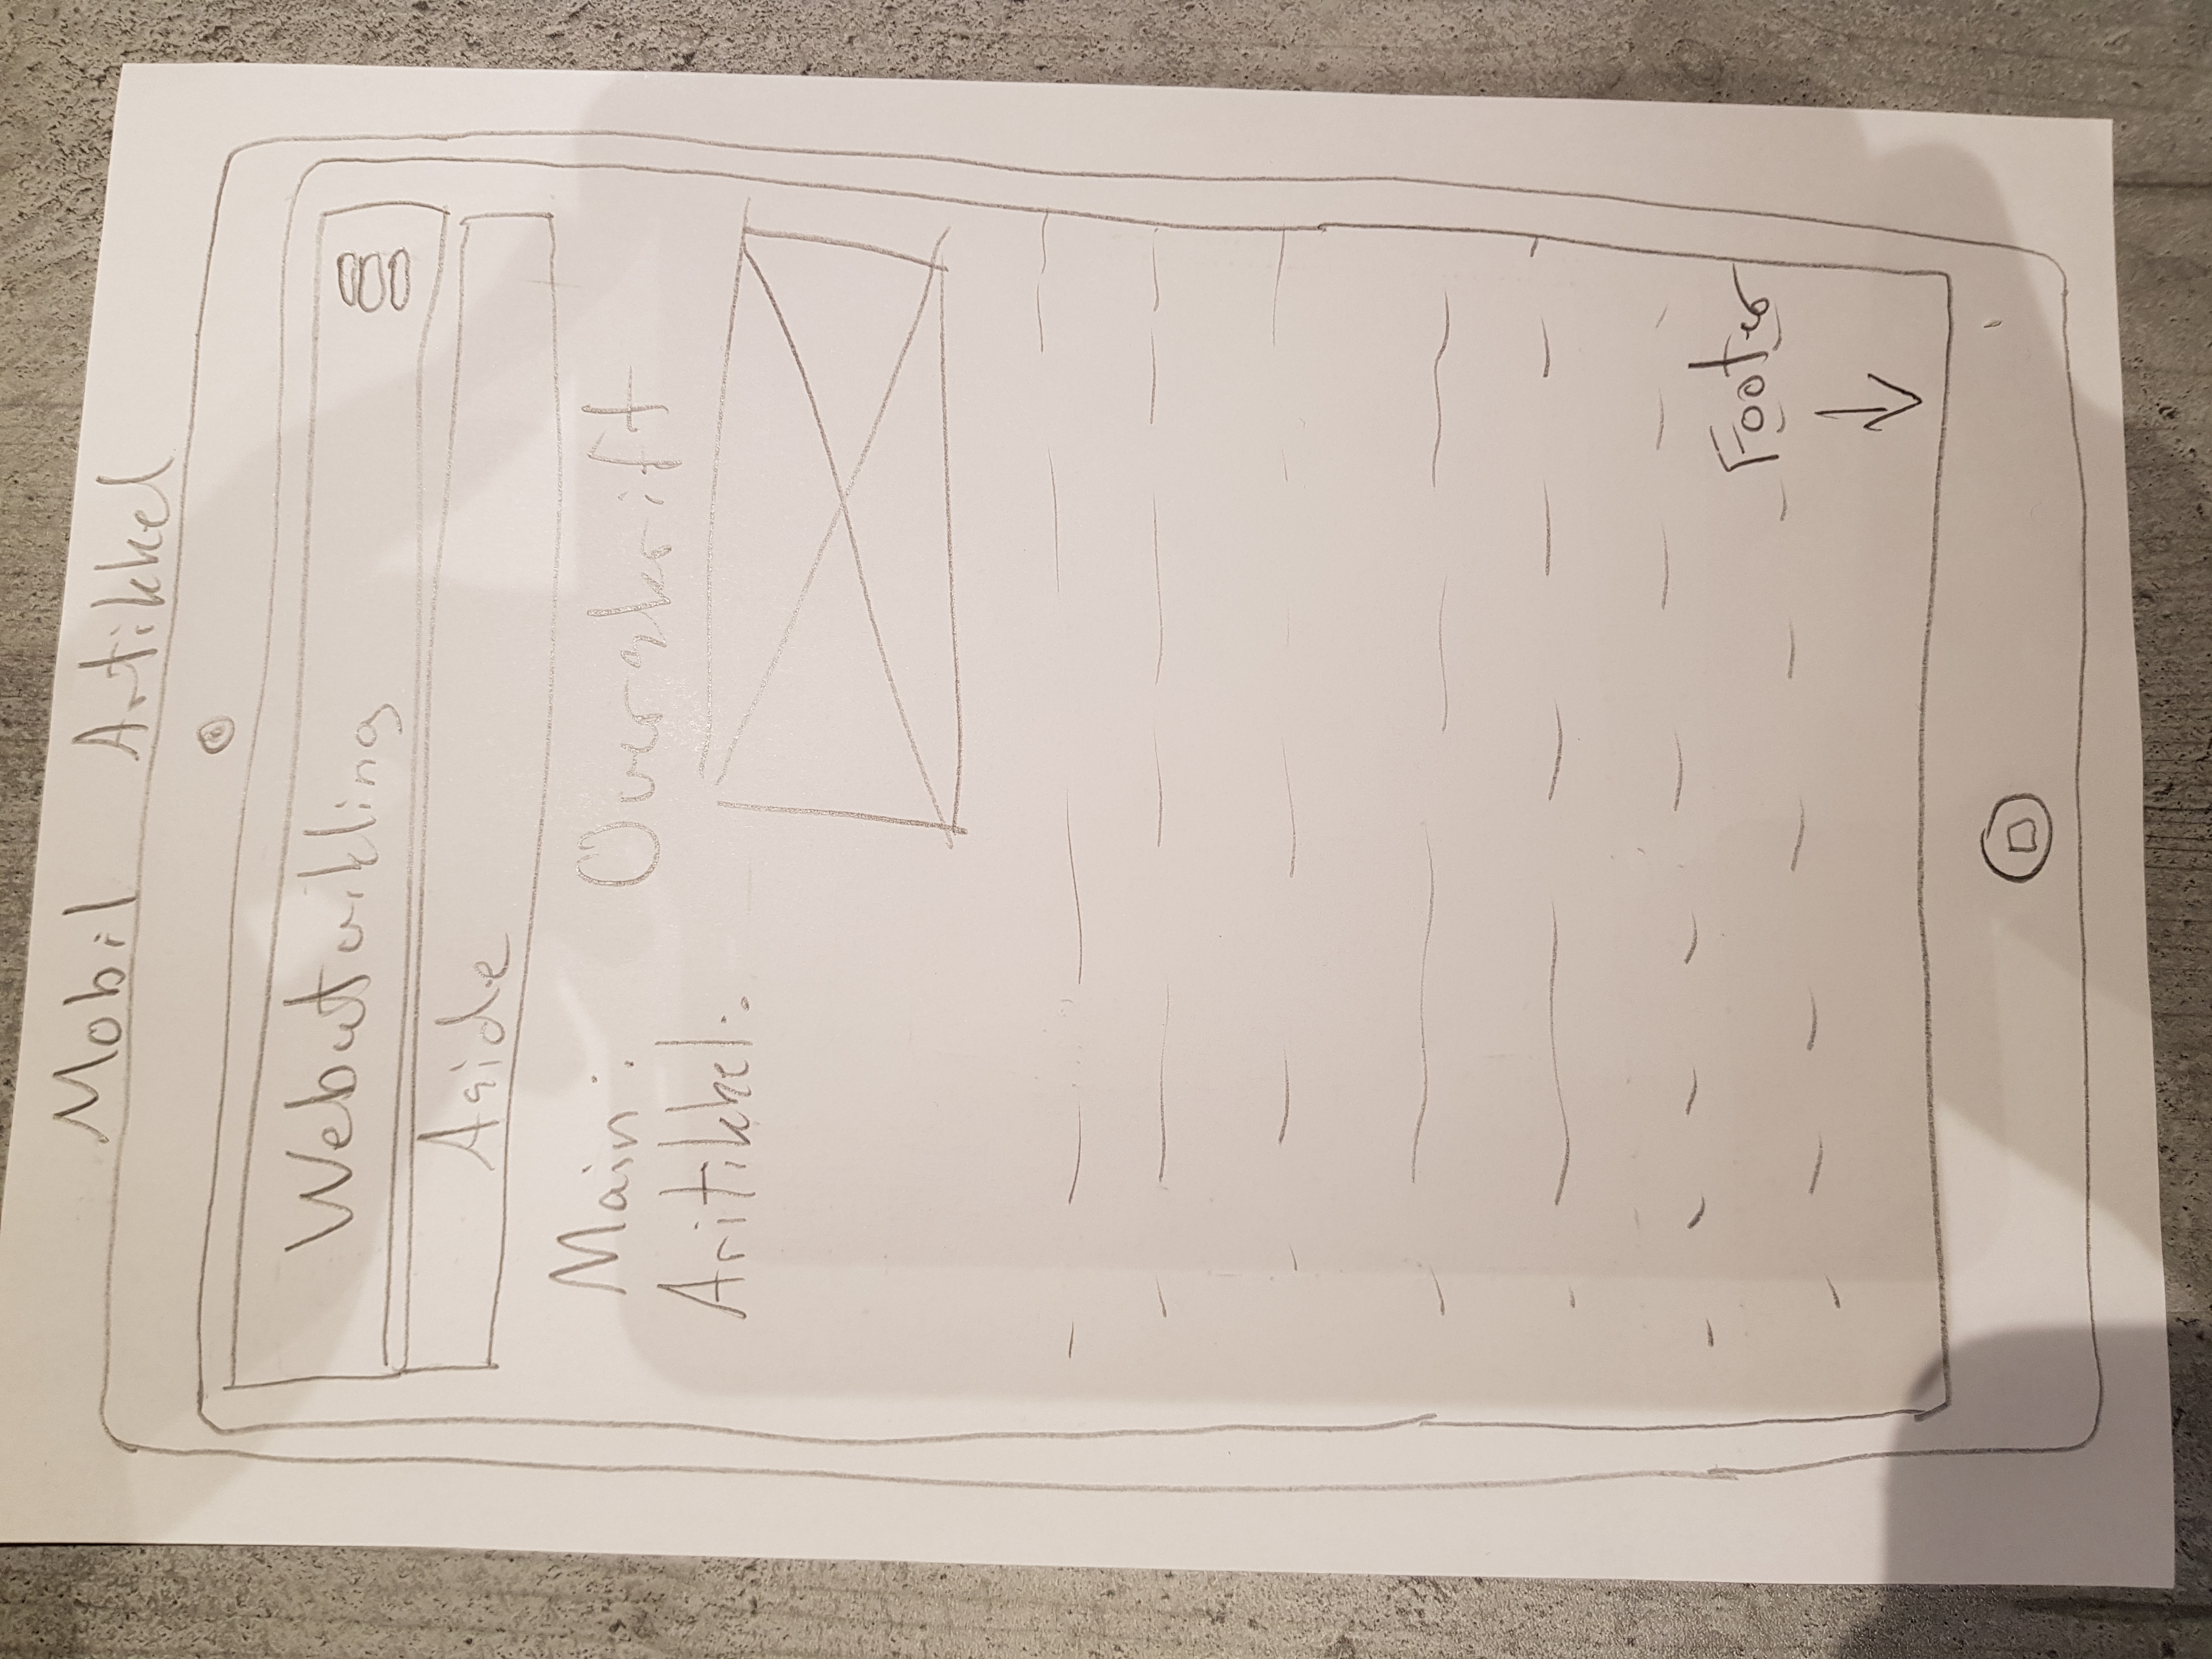 Mobil Artikkel
Webutvikling
Aside
Main: Overskrift
Aritikkel:
Footer